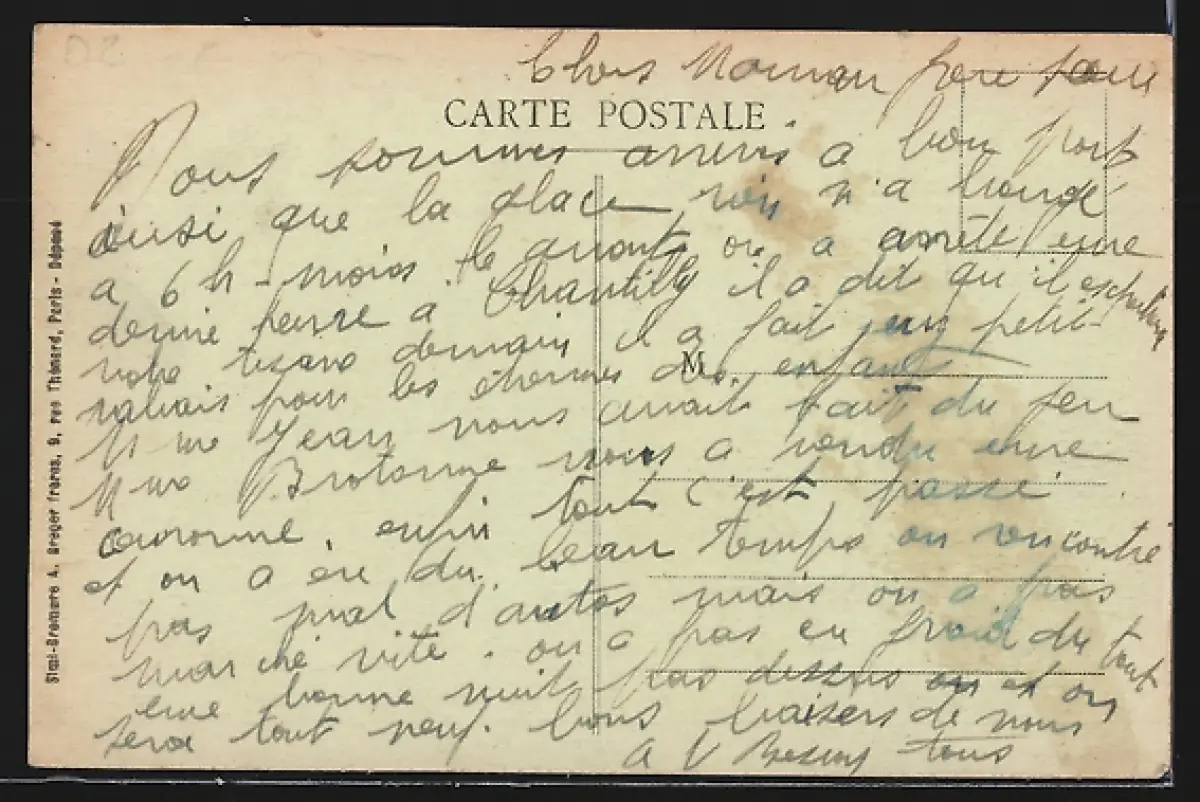 Chers Maman frère soeur
CARTE POSTALE
Nous sommes arrivés a bon port
ainsi que la glace rien n'a bougé
a 6 h - moins le quart on a arrêté une
demie heure a Chantilly il a dit qu'il
votre demain il a fait un petit
rabais pour les étrennes des enfants
M
Mme Jean nous avait fait du feu
Mme nous a rendu une
couronne, enfin tout c'est passé
et on a eu du beau temps on rencontré
pas mal d'autos mais on a pas
marché vite. on a pas eu froid du tout
une bonne nuit pas dessus et on
sera tout neuf. bons baisers de nous
tous
Simi-Bromure A. Breger frères, 9, rue Thénard, Paris - Déposé